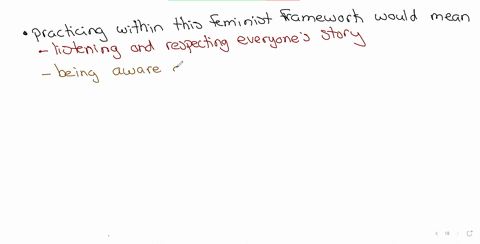 • practicing within this feminist framework would mean
- listening and respecting everyone's story
- being aware